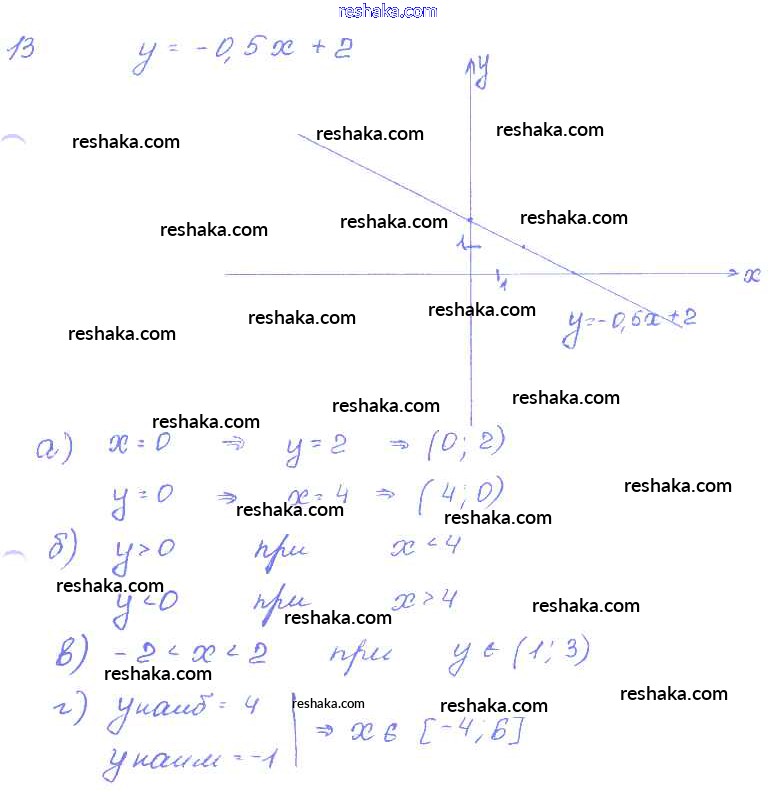 reshaka.com
13 y = -0,5x + 2
y
reshaka.com reshaka.com reshaka.com
reshaka.com reshaka.com reshaka.com
1
x
1
reshaka.com reshaka.com reshaka.com
y=-0,5x+2
reshaka.com reshaka.com reshaka.com
а) x=0 ⇒ y=2 ⇒ (0; 2)
y=0 ⇒ x=4 ⇒ (4; 0)
reshaka.com reshaka.com reshaka.com
б) y>0 при x<4
reshaka.com
y<0 при x>4
reshaka.com reshaka.com
в) -2<x<2 при y∈(1; 3)
reshaka.com
г) yнаиб = 4
reshaka.com reshaka.com reshaka.com
yнаим = -1 ⇒ x∈[-4; 6]